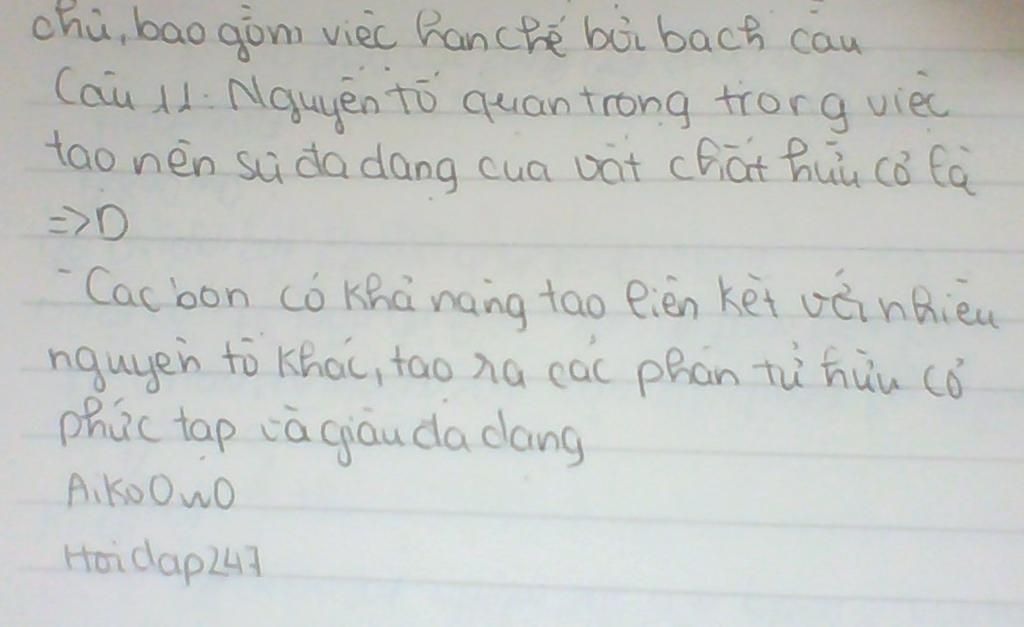 chủ, bao gồm việc hạn chế bởi bạch cầu
Câu 11. Nguyên tố quan trọng trong việc
tạo nên sự đa dạng của vật chất hữu cơ là
=>D
- Cacbon có khả năng tạo liên kết với nhiều
nguyên tố khác, tạo ra các phân tử hữu cơ
phức tạp và giàu đa dạng
AikoOwO
Hoidap247